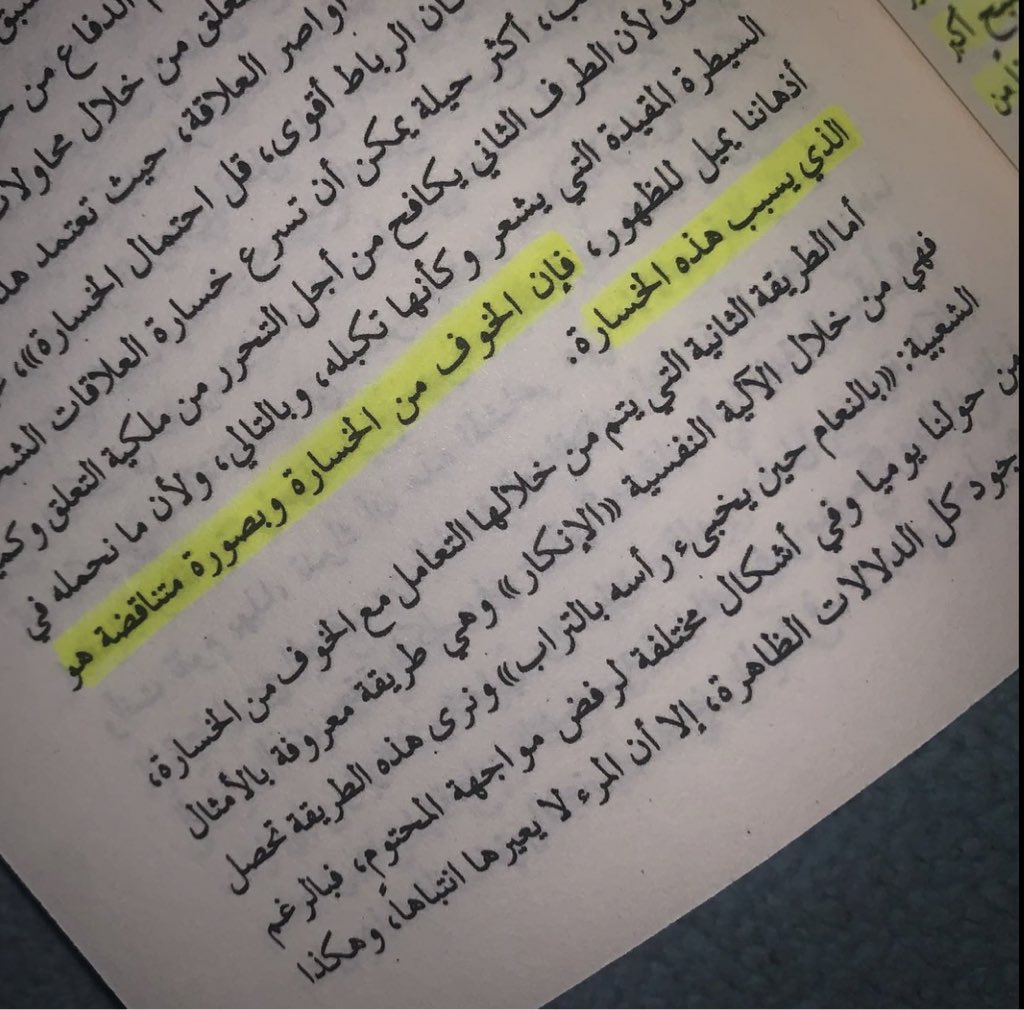 الدفاع من
من خلال محاولات
أواصر العلاقة، حيث تعتمد
الرباط أقوى، قل احتمال الخسارة»،
أكثر حيلة يمكن أن تسرع خسارة العلاقات
لأن الطرف الثاني يكافح من أجل التحرر من ملكية التعلق
السيطرة المقيدة التي يشعر وكأنها تكبله، وبالتالي، ولأن ما نحمله في
أذهاننا يميل للظهور، فإن الخوف من الخسارة وبصورة متناقضة هو
الذي يسبب هذه الخسارة.
أما الطريقة الثانية التي يتم من خلالها التعامل مع الخوف من الخسارة،
فهي من خلال الآلية النفسية «الإنكار» وهي طريقة معروفة بالأمثال
الشعبية: «بالنعام حين يخبىء رأسه بالتراب» ونرى هذه الطريقة تحصل
من حولنا يوميا وفي أشكال مختلفة لرفض مواجهة المحتوم، فبالرغم
كل الدلالات الظاهرة، إلا أن المرء لا يعيرها انتباهاً، وهكذا
أكبر
من